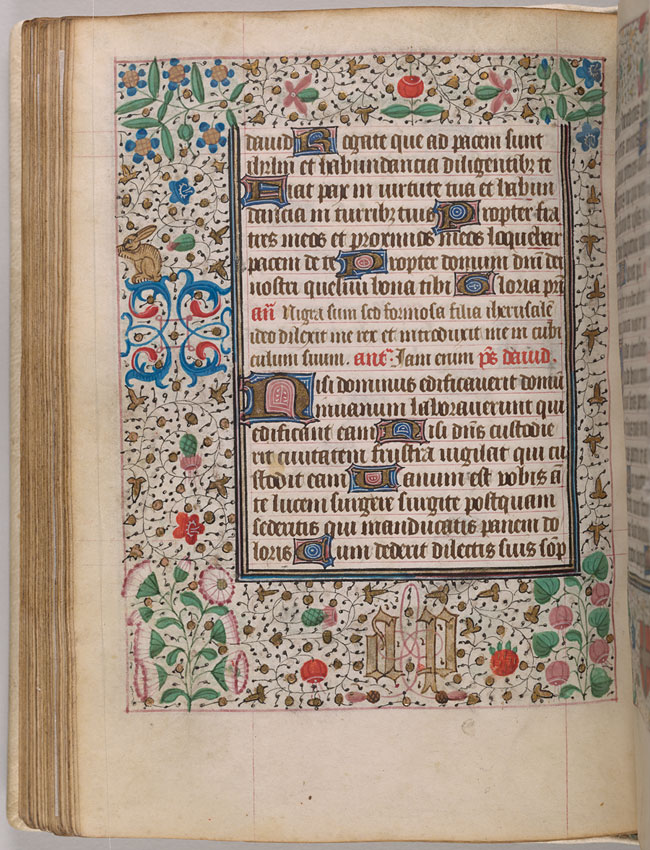 dauid Rogate que ad pacem sunt
ihrlm et habundancia diligentibz te
Fiat pax in uirtute tua et habun
dancia in turribz tuis Propter fra
tres meos et proximos meos loquebar
pacem de te Propter domum dnı̄ dei
nostri quesiui bona tibi Gloria pri
an̄ Nigra sum sed formosa filia iherusalē
ideo dilexit me rex et introduxit me in cubi
culum suum. ant. Iam enim p̄s dauid.
Nisi dominus edificauerit domū
inuanum laborauerunt qui
edificant eam Nisi dn̄s custodie
rit ciuitatem frustra uigilat qui cu
stodit eam Vanum est vobis ā
te lucem surgere surgite postquam
sederitis qui manducatis panem do
loris Cum dederit dilectis suis sōp